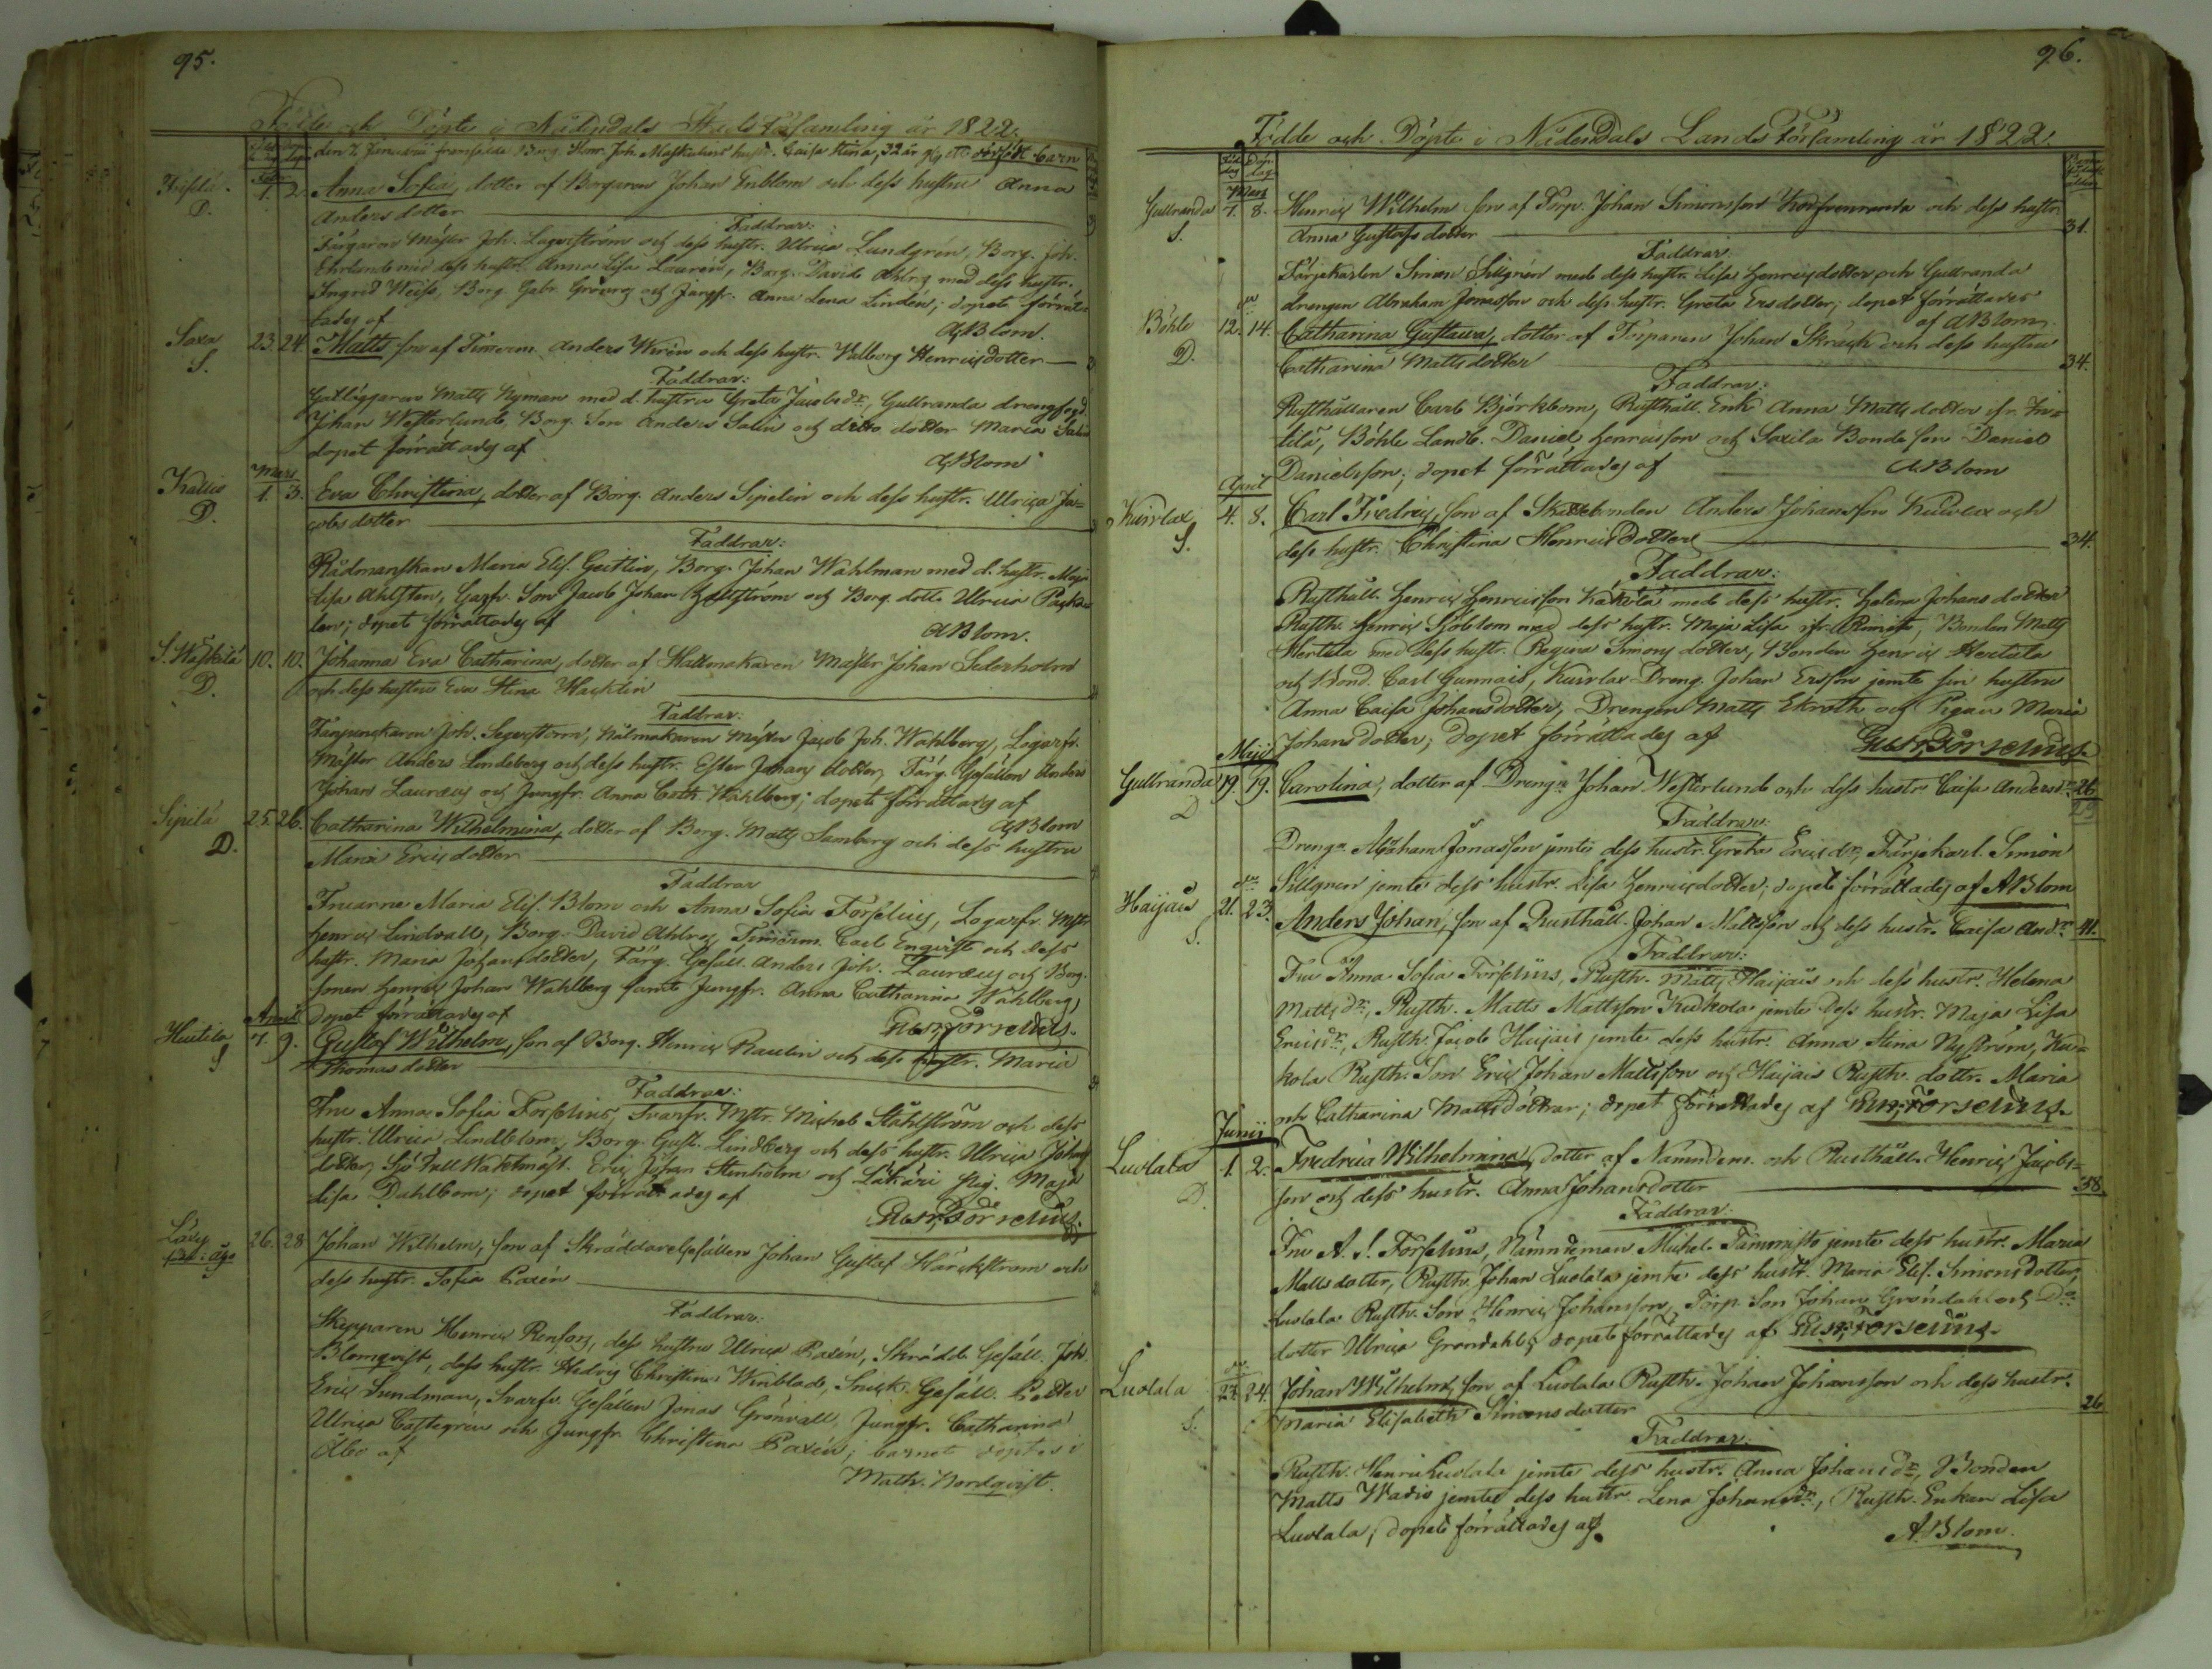 95.
Födde och Döpte i Nådendals Stads Församling år 1822.
den 7 Januarii framfödde Borg. Joh. hustr. Caisa Stina, 32 år ett dödfödt barn
Febr.
D.
1. 2. Anna Sofia, dotter af Borgaren Johan Enblom och dess hustru Anna
Anders dotter
Faddrar:
Färgaren Mäster Joh. Lagerström och dess hustr. Ulrica Lundgrén, Borg. Joh.
Ehrlund med dess hustr. Anna Lisa Laurén, Borg. David Ahlroz med dess hustr.
Ingrid Weiss, Borg. Gabr. och Jungfr. Anna Lena Lindén; dopet förrät-
tades af
A Blom.
Saxa
S.
23. 24. Matts son af Timerm. Anders Wirén och dess hustr. Walborg Henricsdotter
Faddrar:
Gatläggaren Matts Nyman med d. hustru Greta Jacobsdr., Gullranda drengfogd.
Johan Westerlund, Borg. Son Anders Salin och ditto dotter Maria Salin
dopet förrättades af
A Blom
Mars
Kallis
D.
1. 3. Eva Christina, dotter af Borg. Anders Sipelin och dess hustr. Ulrica Ja-
cobs dotter
Faddrar:
Rådmanskan Maria Elis. Geitlin, Borg. Johan Wahlman med d. hustr. Maja
Lisa Ahlsten, Garfv. Son Jacob Johan och Borg. dott. Ulrica
len; dopet förrättades af
A Blom.
D.
10. 10. Johanna Eva Catharina, dotter af Hattmakaren Mäster Johan Sederholm
och dess hustru Eva Stina Hacklin
Faddrar:
Joh. Segerstorm, Nålmakaren Mäster Jacob Joh. Wahlberg, Logarfv.
Mäster Anders Lindeberg och dess hustr. Ester Johans dotter, Färg. Gesällen Anders
Johan Lauraeus och Jungfr. Anna Cath. Wahlberg; dopet förrättades af
A Blom
Sipilä
D.
25. 26. Catharina Wilhelmina, dotter af Borg. Matts Lamberg och dess hustru
Maria Erics dotter
Faddrar
Fruarne Maria Elis. Blom och Anna Sofia Forselius, Logarfv. Mstr
Henric Lindvall, Borg. David Ahlroz, Timerm. Carl Engvist och dess
hustr. Maria Johans dotter, Färg. Gesäll. Anders Joh. Lauraeus och Borg.
sonen Henric Johan Wahlberg samt Jungfr. Anna Catharina Wahlberg;
dopet förrättades af
Gust. Forselius.
April
Heikila
S
7. 9. Gustaf Wilhelm, son af Borg. Henric Raulin och dess hustr. Maria
Thomas dotter
Faddrar:
Fru Anna Sofia Forselius, Svarfv. Mstr. Michel Ståhlström och dess
hustr. Ulrica Lindblom, Borg. Gust. Lindberg och dess hustr. Ulrica Johans
dotter, Sjö Tull Waktmäst. Eric Johan Stenholm och Pig. Maja
Lisa Dahlbom; dopet förrättades af
Gust. Forselius.
26. 28 Johan Wilhelm, son af Skräddaregesällen Johan Gustaf Härckström och
dess hustr. Sofia Paxén
Faddrar:
Skepparen Henric Renfors, dess hustru Ulrica Paxén, Skrädd. Gesäll. Joh.
Blomqvist, dess hustr. Hedvig Christina Winblad, Snick. Gesäll. Petter
Eric Sundman, Svarfv. Gesällen Jonas Grönvall, Jungfr. Catharina
Ulrica Castegren och Jungfr. Christina Paxén; barnet döptes i
Åbo af
Math. Nordqvist.
96.
Födde och Döpte i Nådendals Lands Församling år 1822.
Mars
Gullranda
S.
7. 8. Henric Wilhelm son af Torp. Johan Simonsson och dess hustr
Anna Gustafs dotter
31.
Faddrar:
Färjekarlen Simon Sillgrén med dess hustr. Lisa Henricsdotter, och Gullranda
drengen Abraham Jonasson och dess hustr. Greta Ersdotter; dopet förrättades
af A Blom.
Böhle
D.
12. 14. Catharina Gustava, dotter af Torparen Johan Skräck och dess hustru
Catharina Mattsdotter
34.
Faddrar:
Rusthållaren Carl Björkbom, Rusthåll. Enk. Anna Matts dotter ifr.
Böhle Landb. Daniel Henricsson och Soxila Bonde Son Daniel
Danielsson; dopet förrättades af
A Blom
April
Kuivlax
S.
4. 8. Carl Fredric, son af Skattebonden Anders Johansson Kuivlax och
dess hustr. Christina Henrics dotter
34.
Faddrar:
Rusthåll. Henric Henricsson med dess hustr. Helena Johans dotter
Rusth. Henric Sjöblom med dess hustr. Maja Lisa ifr. Bonden Matts
Hertula med dess hustr. Regina Simons dotter, Bonden Henric Hertula
och Bond. Carl Gunnais, Kuivlax Dreng. Johan Ersson jemte sin hustru
Anna Caisa Johansdotter, Drengen Matts Ekroth och Pigan Maria
Johans dotter; dopet förrättades af
Gust. Forselius
Maji
Gullranda
D
19. 19. Carolina, dotter af Dreng. Johan Westerlund och dess hustr Caisa Andersdr. 26
Faddrar:
Dreng. Abraham Jonasson jemte dess hustr. Greta Ericsdr, Färjekarl. Simon
Sillgren jemte dess hustr. Lisa Henricsdotter; dopet förrättades af A Blom
Haijais
S.
21. 23. Anders Johan, son af Rusthåll. Johan Mattsson och dess hustr. Caisa Andr. 41.
Faddrar:
Fru Anna Sofia Forselius, Rusth. Matts Haijais och dess hustr. Helena
Mattsdr., Rusth. Matts Mattsson Kukola jemte dess hustr. Maja Lisa
Ericsdr, Rusth. Jacob Haijais jemte dess hustr. Anna Stina Nyström, Ku-
kola Rusth. Son Eric Johan Mattsson och Haijais Rusth. dottr. Maria
och Catharina Matts döttrar; dopet förrättades af Gust. Forselius.
Junii
Luolala
D.
1. 2. Fredrica Wilhelmina, dotter af Nämndem. och Rusthåll. Henric Jacobs-
son och dess hustr. Anna Johansdotter
38
Faddrar:
Fru A. S. Forselius, Nämndeman Michel Tammisto jemte dess hustr. Maria
Mattsdotter, Rusth. Johan Luolala jemte dess hustr. Maria Elis. Simonsdotter,
Luolala Rusth. Son Henric Johansson, Torp. Son Johan Gröndahl och Do
dotter Ulrica Gröndahl; dopet förrättades af Gust. Forselius.
Luolala
S.
23. 24. Johan Wilhelm, son af Luolala Rusth. Johan Johansson och dess hustr.
Maria Elisabeth Simonsdotter
26
Faddrar:
Rusth. Henric Luolala jemte dess hustr. Anna Johansdr, Bonden
Matts Wadis jemte dess hustr Lena Johansdr., Rusth. Enkan Lisa
Luolala, dopet förrättades af
A. Blom.